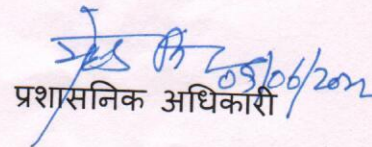 03/06/2022
प्रशासनिक अधिकारी